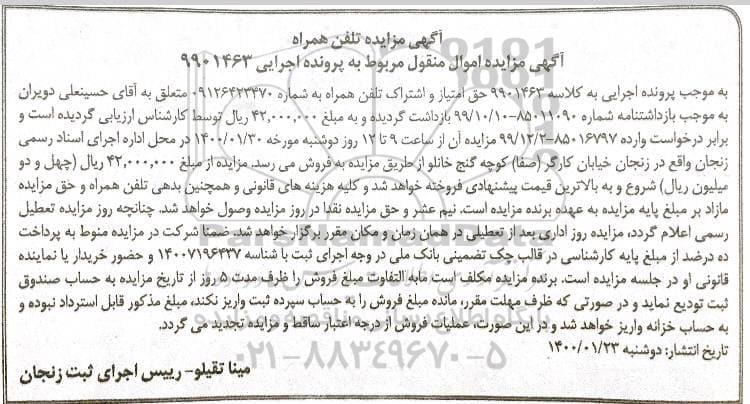 آگهی مزایده تلفن همراه
آگهی مزایده اموال منقول مربوط به پرونده اجرایی ۹۹۰۱۴۶۳
به موجب پرونده اجرایی به کلاسه ۹۹۰۱۴۶۳ حق امتیاز و اشتراک تلفن همراه به شماره ۰۹۱۲۶۴۲۳۴۷۰ متعلق به آقای حسینعلی دویران
به موجب بازداشتنامه شماره ۸۵۰۱۱۰۹۰-۹۹/۱۰/۱۰ بازداشت گردیده و به مبلغ ۴۲,۰۰۰,۰۰۰ ریال توسط کارشناس ارزیابی گردیده است و
برابر درخواست وارده ۸۵۰۱۶۷۹۷-۹۹/۱۲/۲ مزایده آن از ساعت ۹ تا ۱۲ روز دوشنبه مورخه ۱۴۰۰/۰۱/۳۰ در محل اداره اجرای اسناد رسمی
زنجان واقع در زنجان خیابان کارگر (صفا) کوچه گنج خانلو از طریق مزایده به فروش می رسد. مزایده از مبلغ ۴۲,۰۰۰,۰۰۰ ریال (چهل و دو
میلیون ریال) شروع و به بالاترین قیمت پیشنهادی فروخته خواهد شد و کلیه هزینه های قانونی و همچنین بدهی تلفن همراه و حق مزایده
مازاد بر مبلغ پایه مزایده به عهده برنده مزایده است. نیم عشر و حق مزایده نقدا در روز مزایده وصول خواهد شد. چنانچه روز مزایده تعطیل
رسمی اعلام گردد، مزایده روز اداری بعد از تعطیلی در همان زمان و مکان مقرر برگزار خواهد شد. ضمنا شرکت در مزایده منوط به پرداخت
ده درصد از مبلغ پایه کارشناسی در قالب چک تضمینی بانک ملی در وجه اجرای ثبت با شناسه ۱۴۰۰۷۱۹۶۴۳۷ و حضور خریدار یا نماینده
قانونی او در جلسه مزایده است. برنده مزایده مکلف است مابه التفاوت مبلغ فروش را ظرف مدت ۵ روز از تاریخ مزایده به حساب صندوق
ثبت تودیع نماید و در صورتی که ظرف مهلت مقرر، مانده مبلغ فروش را به حساب سپرده ثبت واریز نکند، مبلغ مذکور قابل استرداد نبوده و
به حساب خزانه واریز خواهد شد و در این صورت، عملیات فروش از درجه اعتبار ساقط و مزایده تجدید می گردد.
تاریخ انتشار: دوشنبه ۱۴۰۰/۰۱/۲۳
مینا تقیلو- رییس اجرای ثبت زنجان
ParsNamadData
پایگاه اطلاع رسانی مناقصه و مزایده
۰۲۱-۸۸۳۴۹۶۷۰-۵